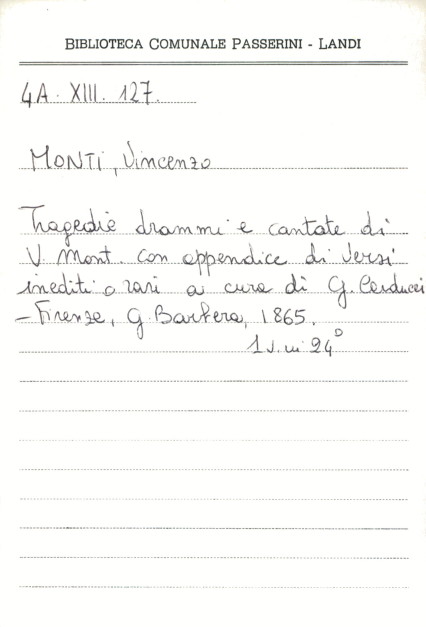 BIBLIOTECA COMUNALE PASSERINI - LANDI
4A. XIII. 127.
MONTI, Vincenzo
Tragedie drammi e cantate di
V. Mont. con appendice di versi
inediti o rari a cura di G. Carducci
- Firenze, G. Barbera, 1865.
1 v. in 24°